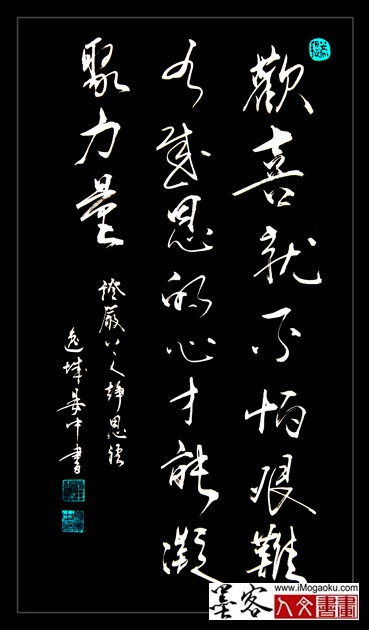 歡喜就不怕艰難
有感恩的心才能凝
聚力量
證嚴上人靜思語
逸城中書
墨客
www.iMogaoku.com
人文書畫